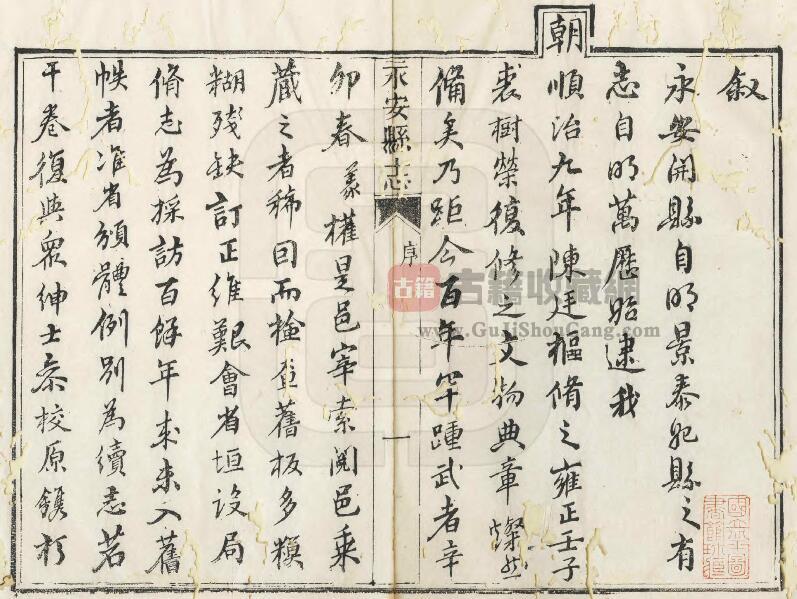 叙
永安開縣自明景泰始縣之有
志自明萬歷始逮我
朝順治九年陳廷樞脩之雍正壬子
裘樹榮復修之文物典章燦然
備矣乃距今百年罕踵武者辛
永安縣志
序
一
卯春義權是邑宰索閱邑乘
藏之者稀因而檢查舊板多模
糊殘缺訂正維艱會省垣設局
脩志為採訪百餘年来未入舊
帙者准省頒體例別為續志若
干卷復與衆紳士叅校原鐫於
古籍
古籍收藏網
www.GuJiShouCang.com